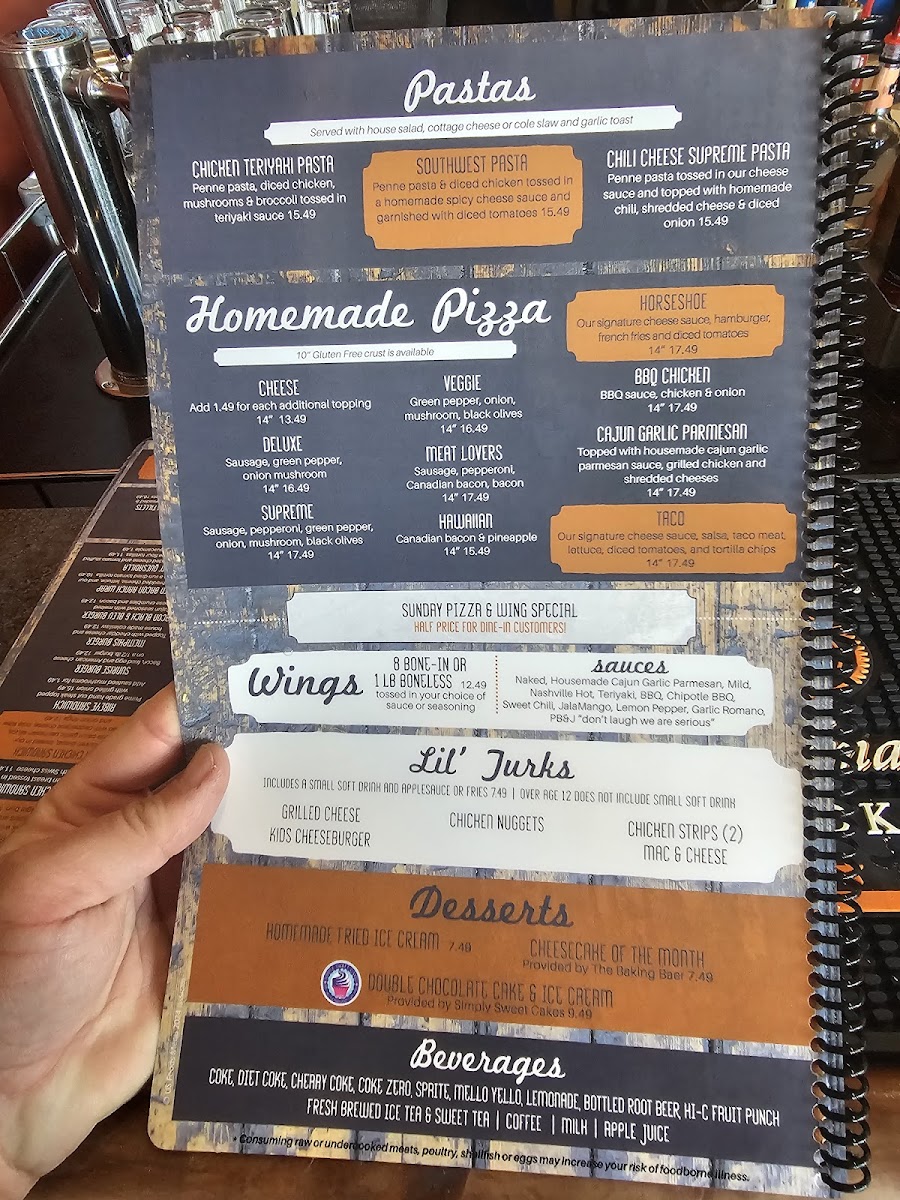 Pastas
Served with house salad, cottage cheese or cole slaw and garlic toast
CHICKEN TERIYAKI PASTA
Penne pasta, diced chicken,
mushrooms & broccoli tossed in
teriyaki sauce 15.49
SOUTHWEST PASTA
Penne pasta & diced chicken tossed in
a homemade spicy cheese sauce and
garnished with diced tomatoes 15.49
CHILI CHEESE SUPREME PASTA
Penne pasta tossed in our cheese
sauce and topped with homemade
chili, shredded cheese & diced
onion 15.49
Homemade Pizza
10" Gluten Free crust is available
CHEESE
Add 1.49 for each additional topping
14" 13.49
DELUXE
Sausage, green pepper,
onion mushroom
14" 16.49
SUPREME
Sausage, pepperoni, green pepper,
onion, mushroom, black olives
14" 17.49
VEGGIE
Green pepper, onion,
mushroom, black olives
14" 16.49
MEAT LOVERS
Sausage, pepperoni,
Canadian bacon, bacon
14" 17.49
HAWAIIAN
Canadian bacon & pineapple
14" 15.49
HORSESHOE
Our signature cheese sauce, hamburger,
french fries and diced tomatoes
14" 17.49
BBQ CHICKEN
BBQ sauce, chicken & onion
14" 17.49
CAJUN GARLIC PARMESAN
Topped with housemade cajun garlic
parmesan sauce, grilled chicken and
shredded cheeses
14" 17.49
TACO
Our signature cheese sauce, salsa, taco meat,
lettuce, diced tomatoes, and tortilla chips
14" 17.49
SUNDAY PIZZA & WING SPECIAL
HALF PRICE FOR DINE-IN CUSTOMERS!
Wings
8 BONE-IN OR
1 LB BONELESS 12.49
tossed in your choice of
sauce or seasoning
sauces
Naked, Housemade Cajun Garlic Parmesan, Mild,
Nashville Hot, Teriyaki, BBQ, Chipotle BBQ,
Sweet Chili, JalaMango, Lemon Pepper, Garlic Romano,
PB&J "don't laugh we are serious"
Lil' Turks
INCLUDES A SMALL SOFT DRINK AND APPLESAUCE OR FRIES 7.49 | OVER AGE 12 DOES NOT INCLUDE SMALL SOFT DRINK
GRILLED CHEESE
KIDS CHEESEBURGER
CHICKEN NUGGETS
CHICKEN STRIPS (2)
MAC & CHEESE
Desserts
HOMEMADE FRIED ICE CREAM 7.49
CHEESECAKE OF THE MONTH
Provided by The Baking Baer 7.49
DOUBLE CHOCOLATE CAKE & ICE CREAM
Provided by Simply Sweet Cakes 9.49
Beverages
COKE, DIET COKE, CHERRY COKE, COKE ZERO, SPRITE, MELLO YELLO, LEMONADE, BOTTLED ROOT BEER HI-C FRUIT PUNCH
FRESH BREWED ICE TEA & SWEET TEA | COFFEE | MILK | APPLE JUICE
* Consuming raw or undercooked meats, poultry, shellfish or eggs may increase your risk of foodborne illness.
RIBEYE SANDWICH
SUNRISE BURGER
MEMPHIS BURGER